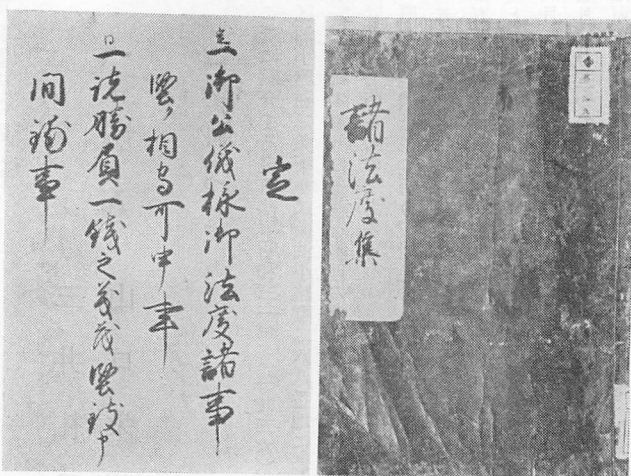 諸法度集
定
一御公儀様御法度諸事
堅ク相守可申事
一諸勝負一銭之義茂堅致申
間鋪事